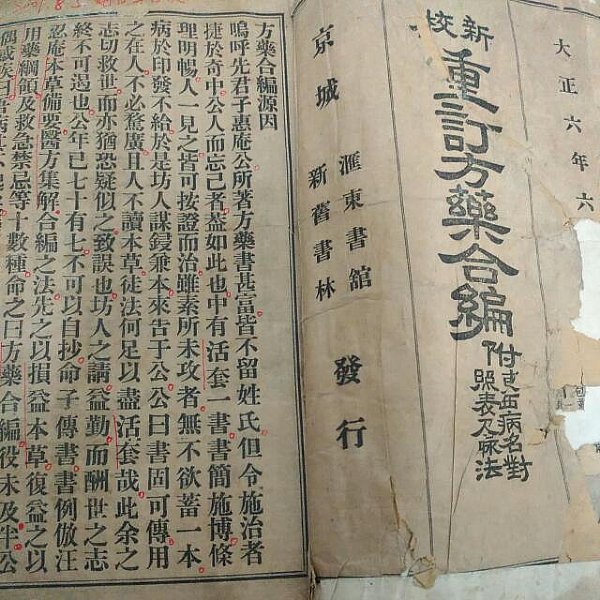 大正六年六
新校
重訂方藥合編
附東西病名對
照表及脉法
滙東書館
京城
新舊書林
發行
方藥合編源因
嗚呼先君子惠庵公所著方藥書甚富皆不留姓氏但令施治者
捷於奇中公人而忘己者蓋如此也中有活套一書書簡施博條
理明暢人一見之皆可按證而治雖素所未攻者無不欲蓄一本
病於印發不給於是坊人謀鋟兼本來告于公公曰書固可傳用
之在人不必騖廣且人不讀本草徒法何足以盡活套哉此余之
志切救世而亦猶恐疑似之致誤也坊人之請益勤而酬世之志
終不可遏也公年已七十有七不可以自抄命子傳書書例倣汪
忍庵本草備要醫方集解合編之法先之以損益本草復益之以
用藥綱領及救急禁忌等十數種命之曰方藥合編役未及半公